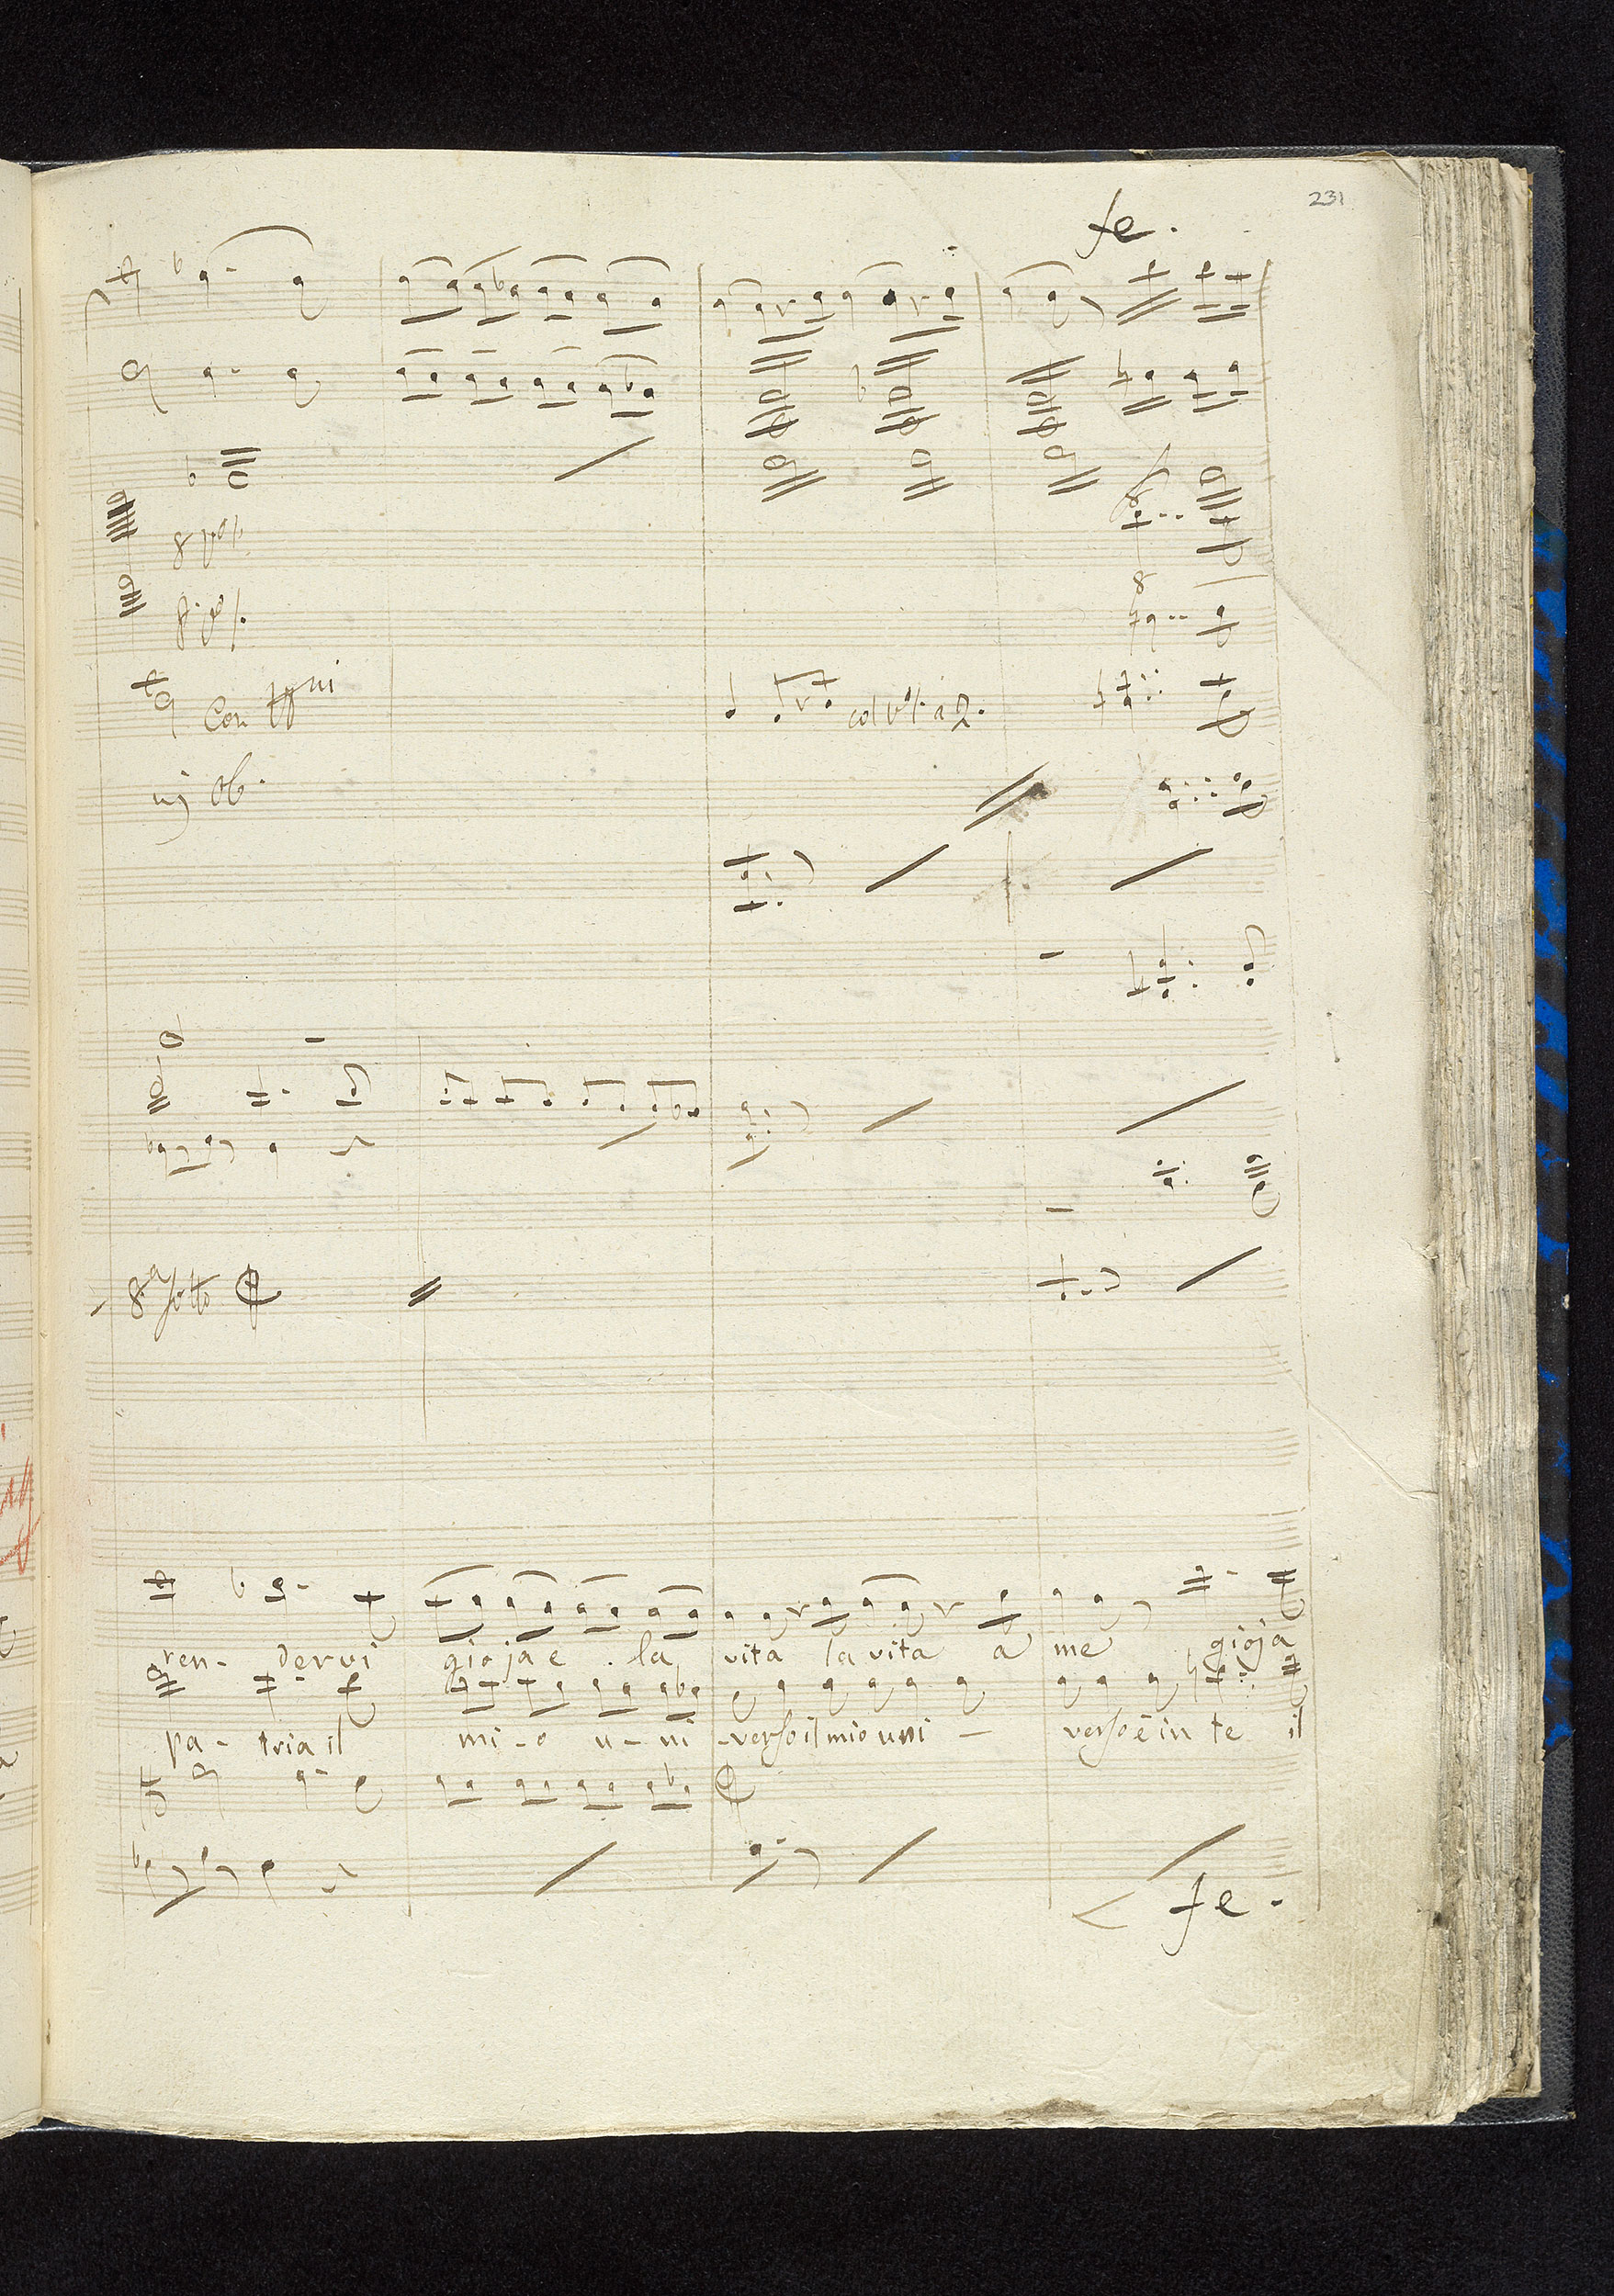 231
fe.
8 va/.
8 va/.
Con
col Vo/. a 2.
ij ob.
8.a sotto
ren- dervi gioja e la vita la vita a me gioja
pa- tria il mi-o u-ni -verso il mio uni- verso è in te il
fe.